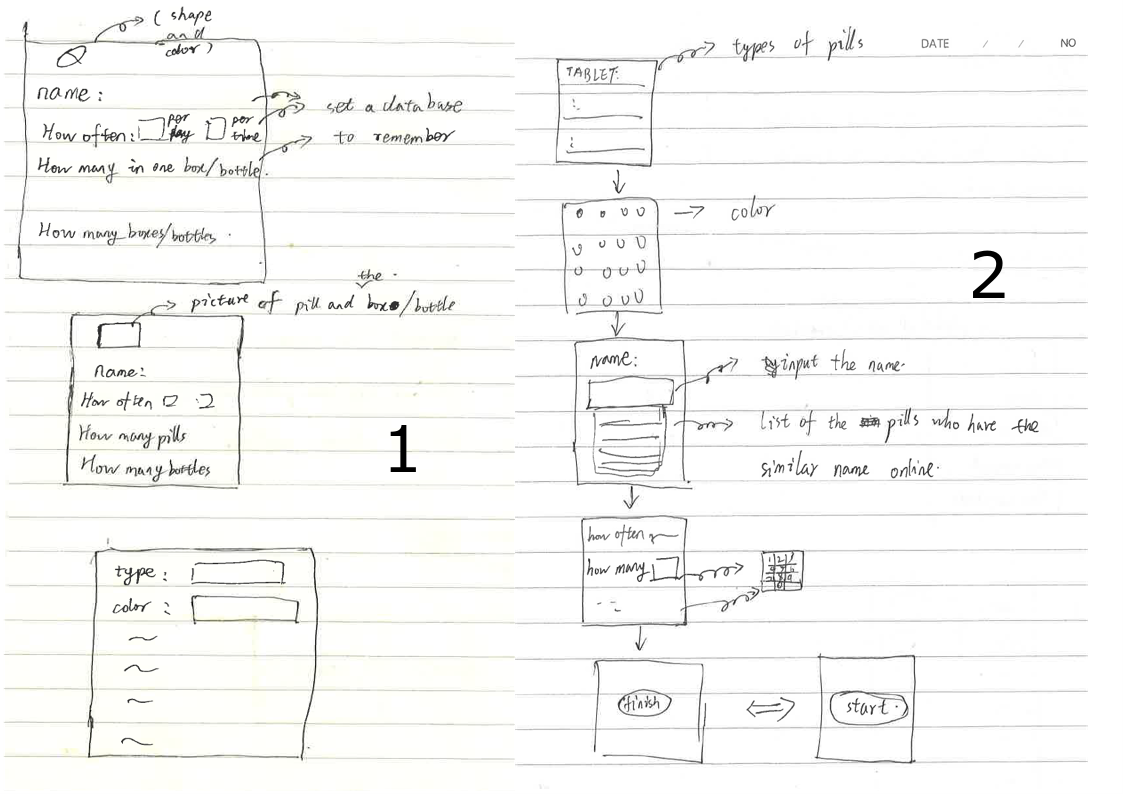 ( shape
and
color )
name :
How often: per day per time
How many in one box/bottle.
set a database
to remember
How many boxes/bottles .
the .
picture of pill and box/bottle
name:
How often
How many pills
How many bottles
1
type :
color :
types of pills
DATE / / NO
TABLET:
color
2
name:
input the name.
list of the pills who have the
similar name online.
how often
how many
1 2 3
finish
start.